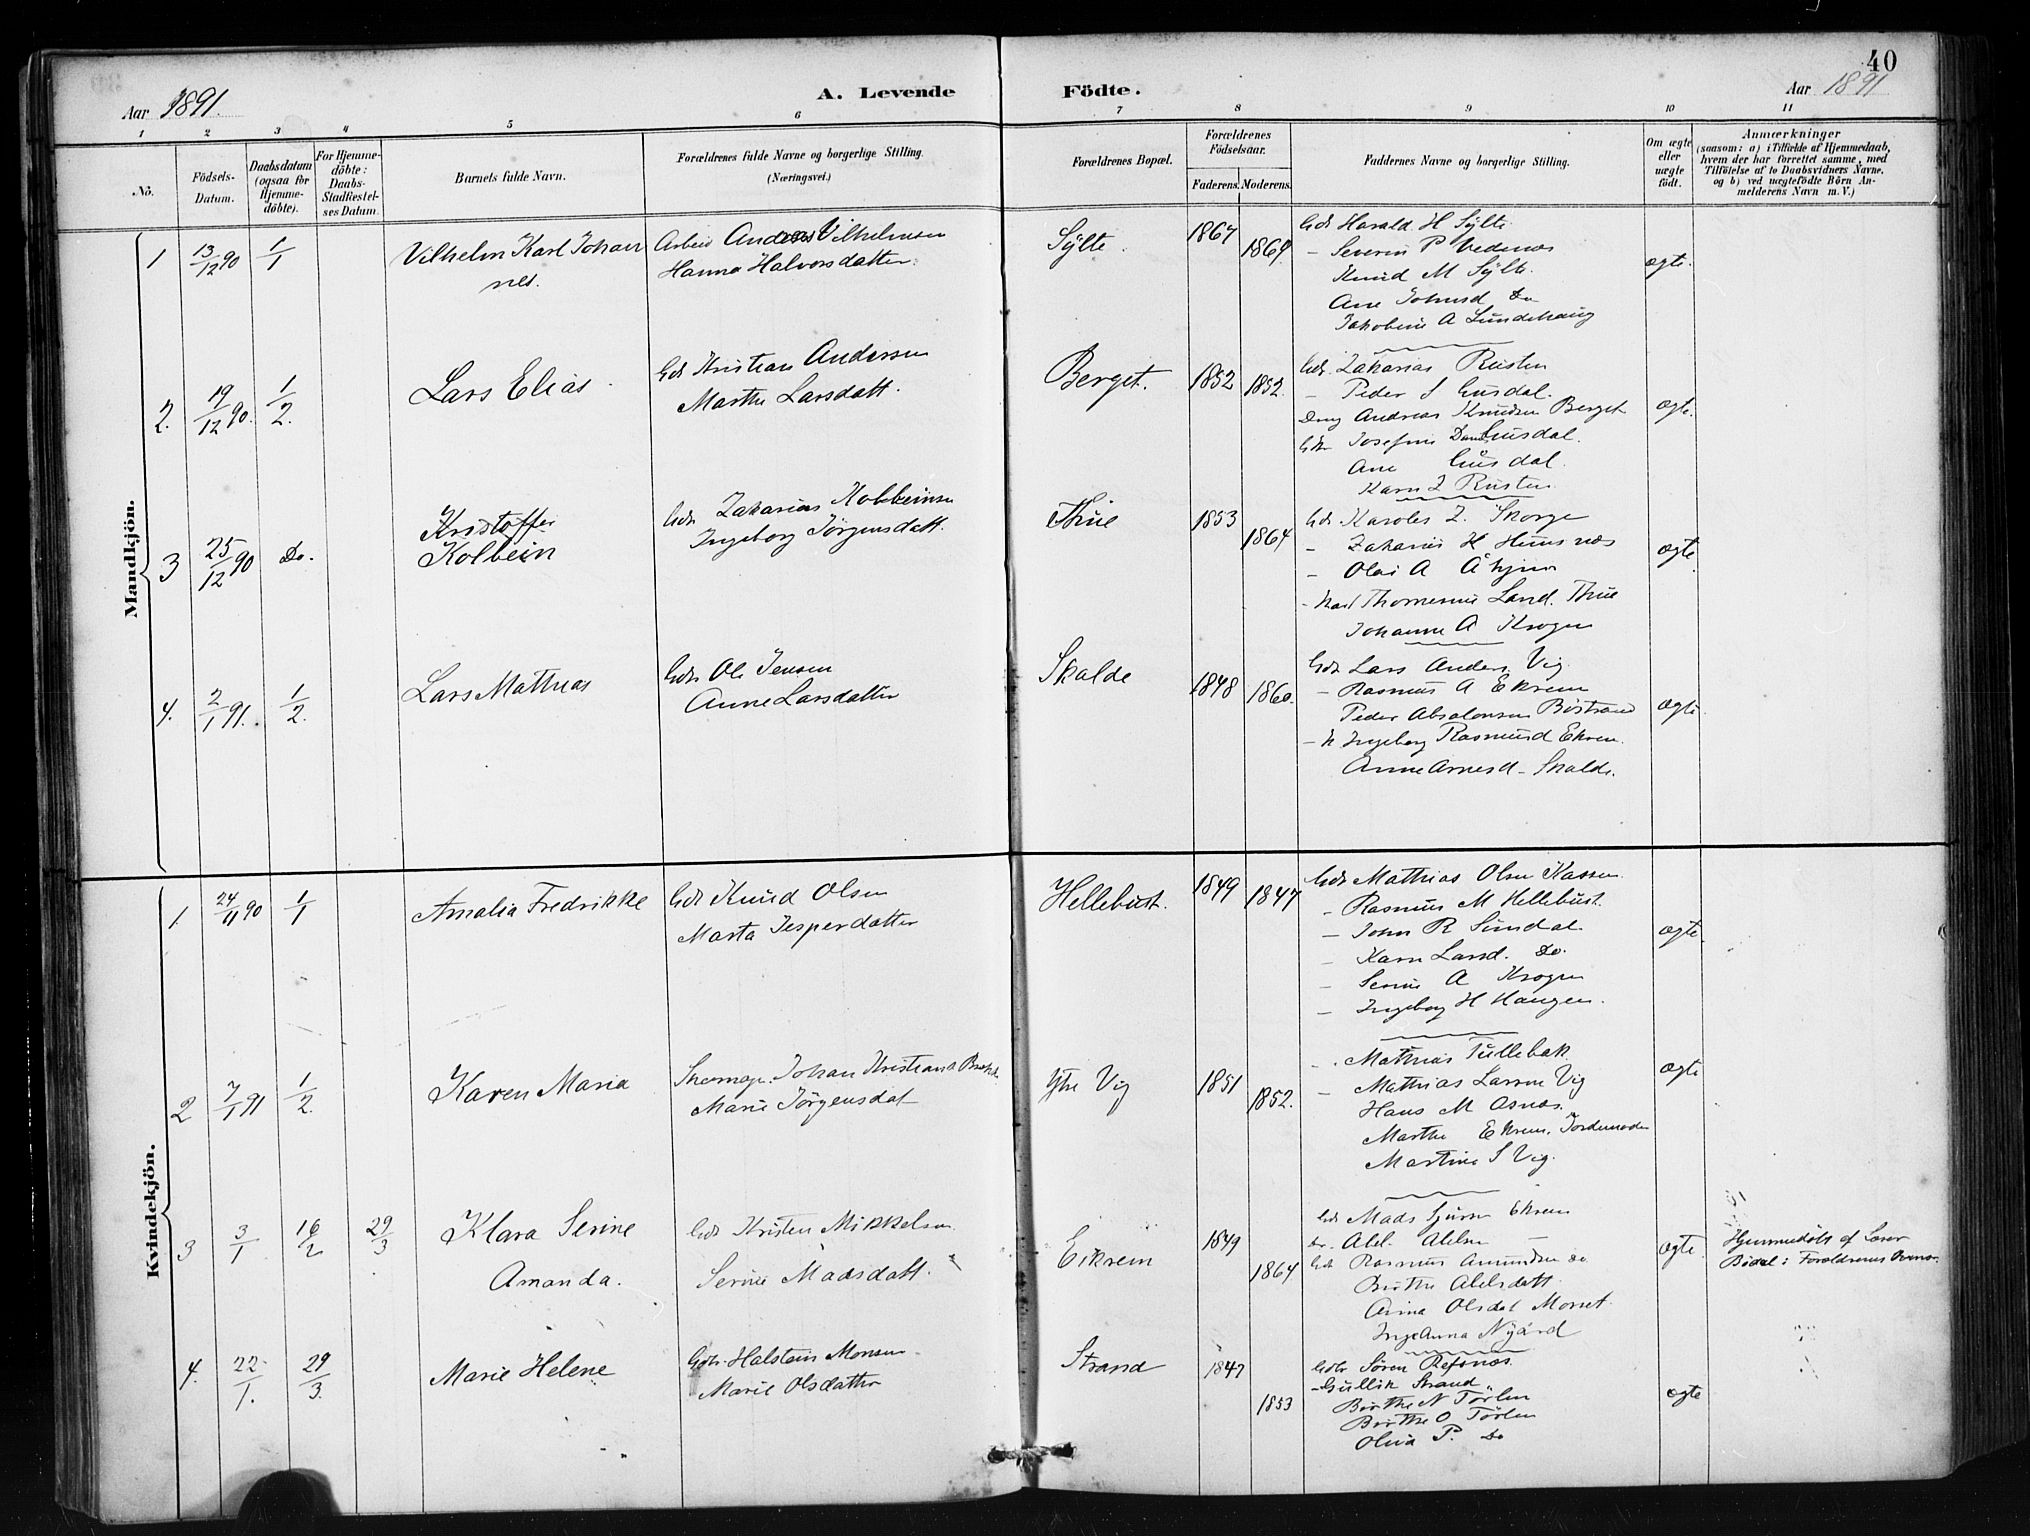 40
Aar 1891.
A. Levende Födte.
Aar 1891
1 2 3 4 5 6 7 8 9 10 11
No.
Födsels-Datum.
Daabsdatum (ogsaa for Hjemme-döbte).
For Hjemme-döbte: Daabs-Stadfæstel-ses Datum.
Barnets fulde Navn.
Forældrenes fulde Navne og borgerlige Stilling.
(Næringsvei.)
Forældrenes Bopæl.
Forældrenes Födselsaar.
Faderens. Moderens.
Faddernes Navne og borgerlige Stilling.
Om ægte eller uægte födt.
Anmærkninger
(saasom: a) i Tilfælde af Hjemmedaab, hvem der har forrettet samme, med Tilföielse af to Daabsvidners Navne, og b) ved uægtefödte Börn Anmelderens Navn m. V.)
Mandkjön.
1 13/12 90 1/1 Vilhelm Karl Johannes.
Arbeid Anders Vilhelmsen
Hanna Halvorsdatter.
Sylte. 1867 1869
Gdr Harald H Sylte
- Severin P Vedenæs
Knud M Sylte
Ane Johnsd Do
Jakobine A Lundehaug
ægte.
2. 19/12 90. 1/2. Lars Elias.
Gdr Kristian Andersen
Marthe Larsdatt.
Berget. 1852 1852.
Gdr. Zakarias Rusten
- Peder S Gusdal.
Dreng Andreas Knudsen Berget
Josefine Gusdal.
Ane Gusdal.
Karn Z Rusten
ægte.
3 25/12 90 Do. Kristoffer Kolbein
Gdr Zakarias Kolbeinsen
Ingeborg Jörgensdatt.
Thue 1853 1864
Gdr Karoles Z. Skorge
- Zakarias H Husnæs
- Olai A
Thomasine Land. Thue
Johanne A Krogen
ægte.
4. 2/1 91. 1/2. Lars Mathias
Gdr Ole Jensen
Anne Larsdatter
Skalde 1848 1860.
Gdr Lars Anders. Vig
- Rasmus A Ekrem
Peder Absalonsen Böstrand
- Ingeborg Rasmusd Ekrem.
Anne Arnesd - Skalde.
ægte.
Kvindekjön.
1. 24/11 90 1/1 Amalia Fredrikke
Gdr Knud Olsen
Marta Jesperdatter
Hellebust. 1849 1847
Gdr Mathias Olsen Kassen
- Rasmus M Hellebust.
- John R Sundal
- Karn Land. Do.
- Serine A Krogen
- Ingeborg H Haugen.
ægte.
2 7/1 91 1/2. Karen Maria
Skomag. Johan Kristians
Marie Jörgensdat
Ytre Vig 1851 1852.
- Mathias Tullebak
- Mathias Larsen Vig
Hans M Osnes.
Marthe Ekrem. Jordemoder
Martine S Vig.
ægte
3 3/1 16/2 29/3 Klara Serine Amanda.
Gdr Kristen Mikkelsen
Serine Madsdatt.
Eikrem 1849 1864
Gdr Mads Sjursen Ekrem
Abel Abelsen -
Gdr Rasmus Amundsen Do
Birthe Abelsdatt
Anna Olsdat Morset.
Inge Anna Nygård
ægte
Hjemmedöbt af Lærer
Bödal: Forældrenes
4. 22/1. 29/3. Marie Helene
Gdr. Halstein Monsen
Marie Olsdatter
Strand 1847 1853
Gdr Sören Refsnæs.
- Gullik Strand
Birthe N Törlen
Birthe O Törlen
Olina P. Do
ægte